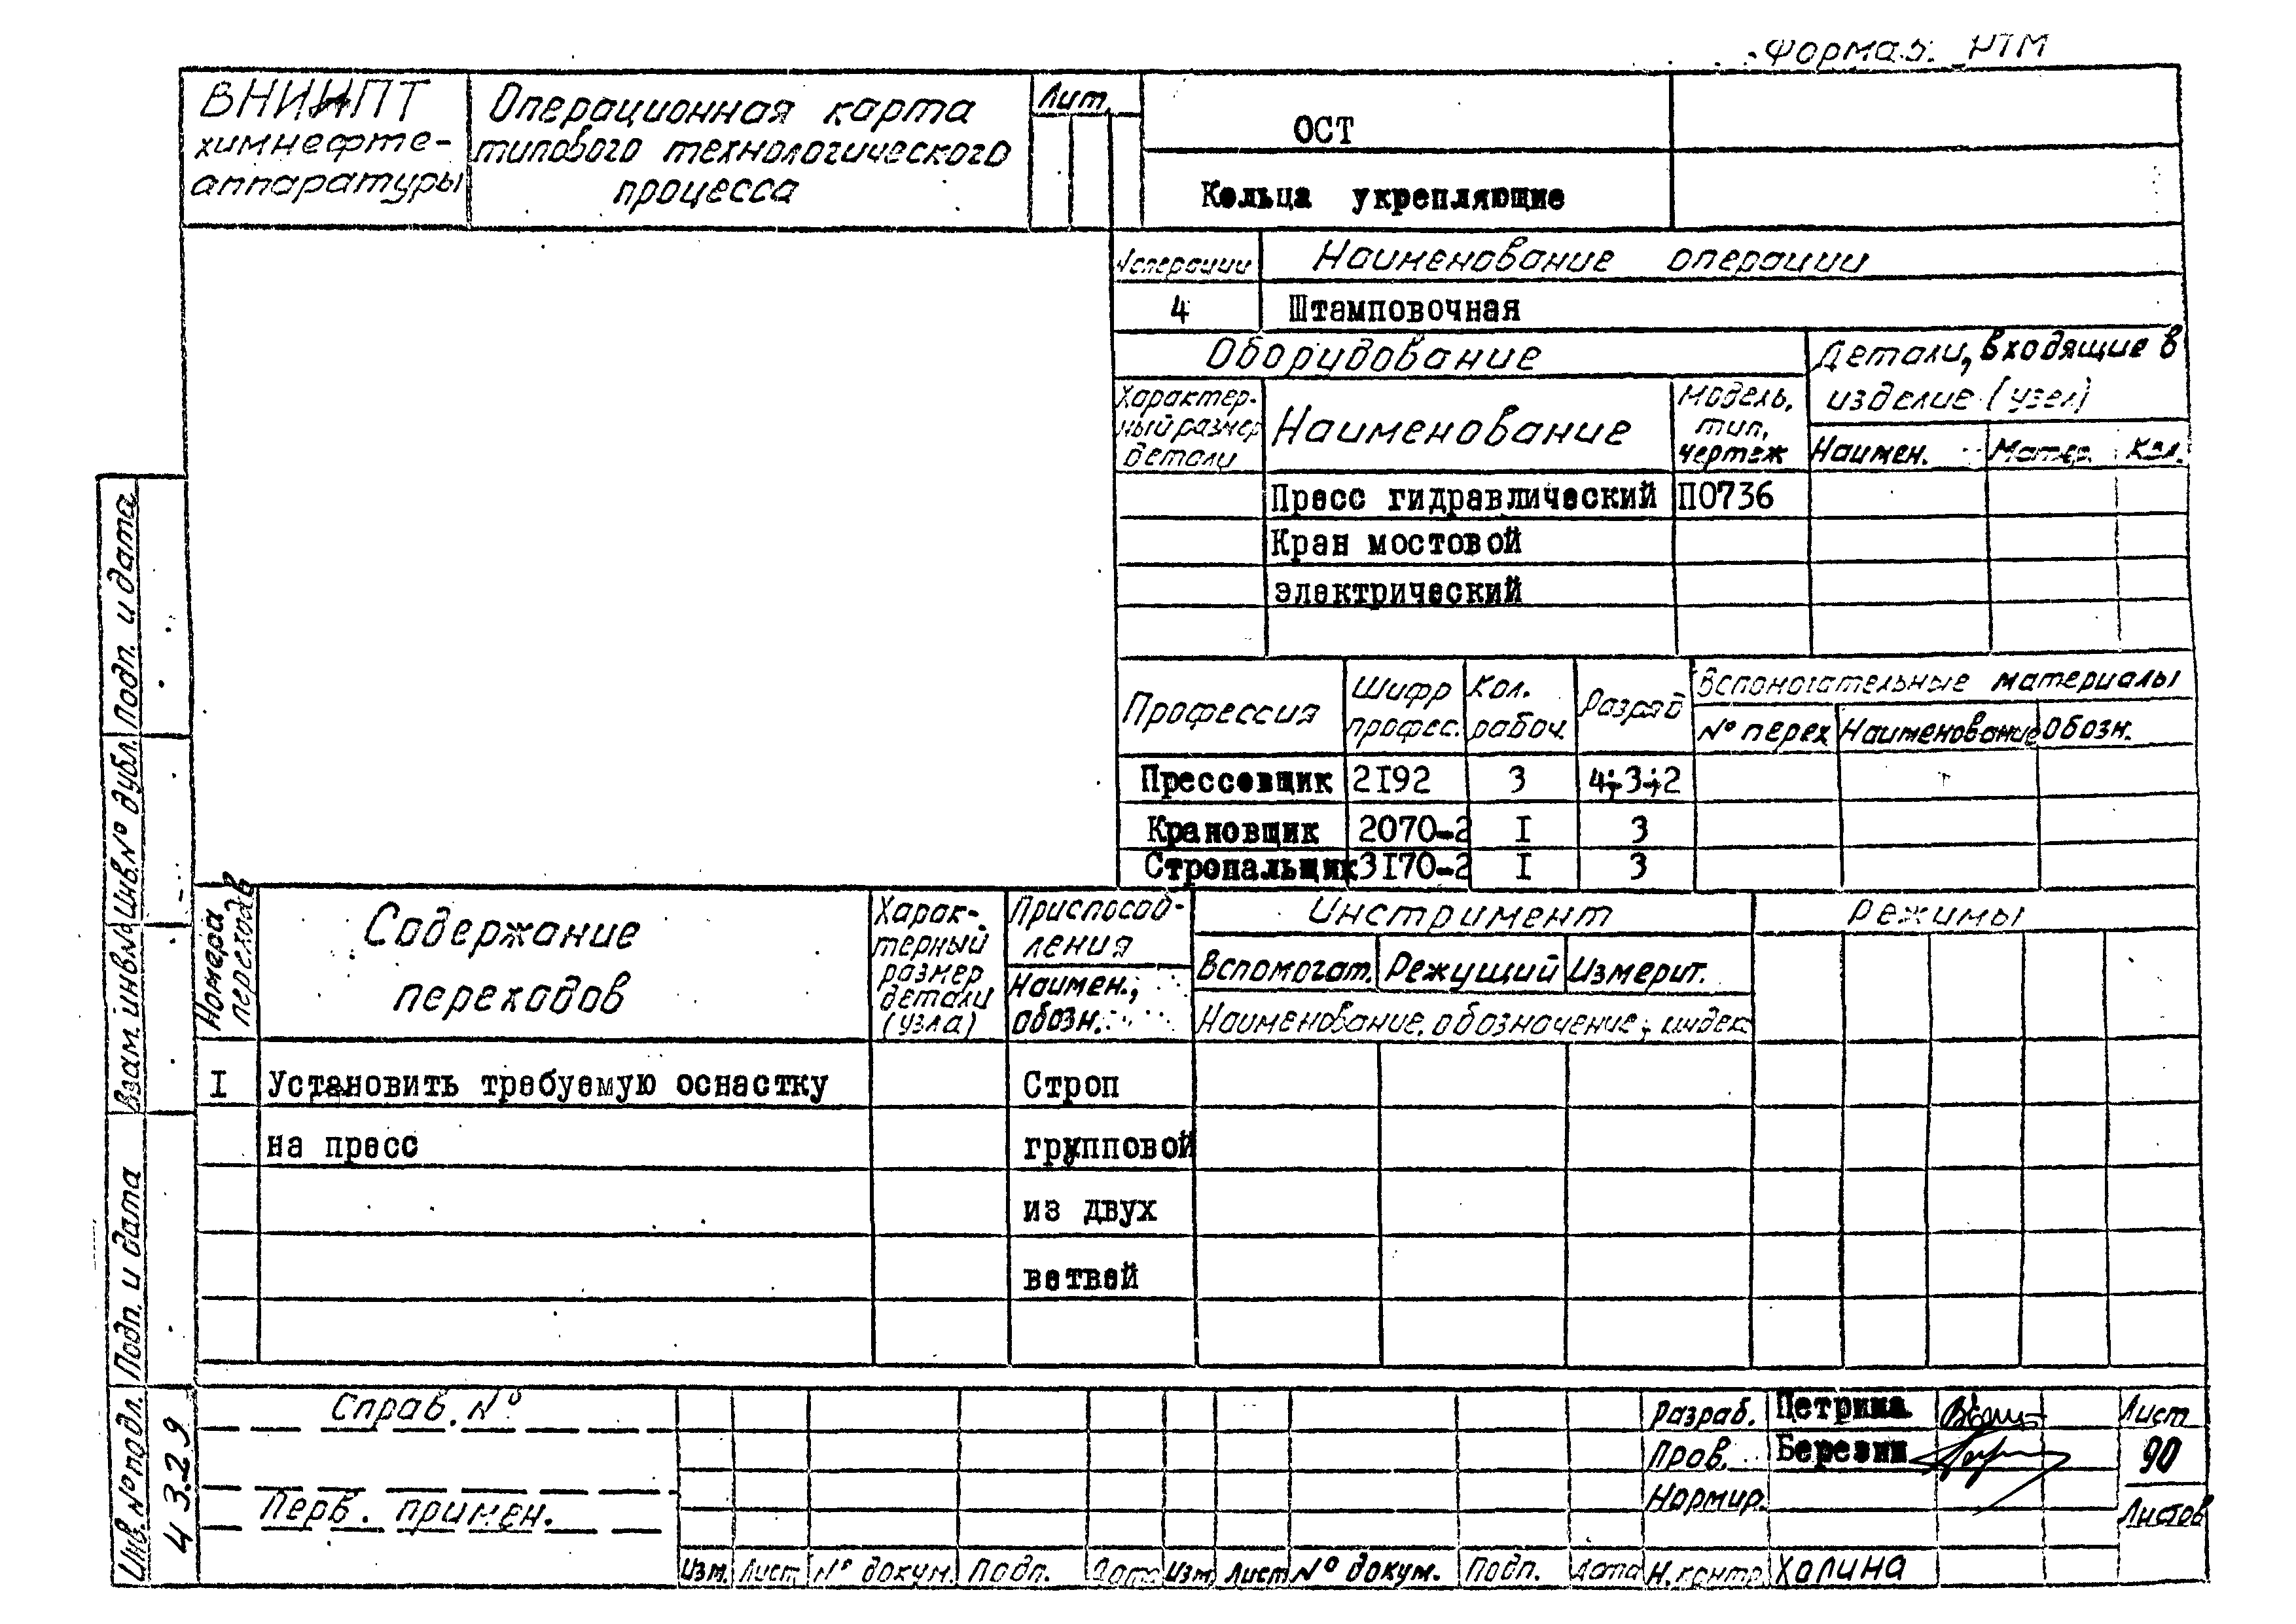 Форма 5. РТМ
ВНИИПТ
химнефте-
аппаратуры
Операционная карта
типового технологического
процесса
Лит.
ОСТ
Кольца укрепляющие
№ операции
Наименование операции
4
Штамповочная
Оборудование
Детали, входящие в
изделие (узел)
Характер-
ный размер
детали
Наименование
Модель,
тип,
чертеж
Наимен.
Матер.
Кол.
Пресс гидравлический
П0736
Кран мостовой
электрический
Профессия
Шифр
профес.
Кол.
рабоч.
Разряд
Вспомогательные материалы
№ перех
Наименование
Обозн.
Прессовщик 2I92 3 4;3;2
Крановщик 2070-2 I 3
Стропальщик 3I70-2 I 3
Номера
переходов
Содержание
переходов
Харак-
терный
размер
детали
(узла)
Приспособ-
ления
Наимен.,
обозн.
Инструмент
Вспомогат.
Режущий
Измерит.
Наименование, обозначение, индек
Режимы
I Установить требуемую оснастку Строп
на пресс групповой
из двух
ветвей
Подп. и дата
Инв.№ дубл.
Взам. инв.№
Подп. и дата
Инв. № подл.
4329
Справ. №
Перв. примен.
Разраб. Петрина
Пров. Березин
Нормир.
Н. контр. Халина
Лист
90
Листов
Изм. Лист № докум. Подп. Дата Изм Лист № докум. Подп. Дата